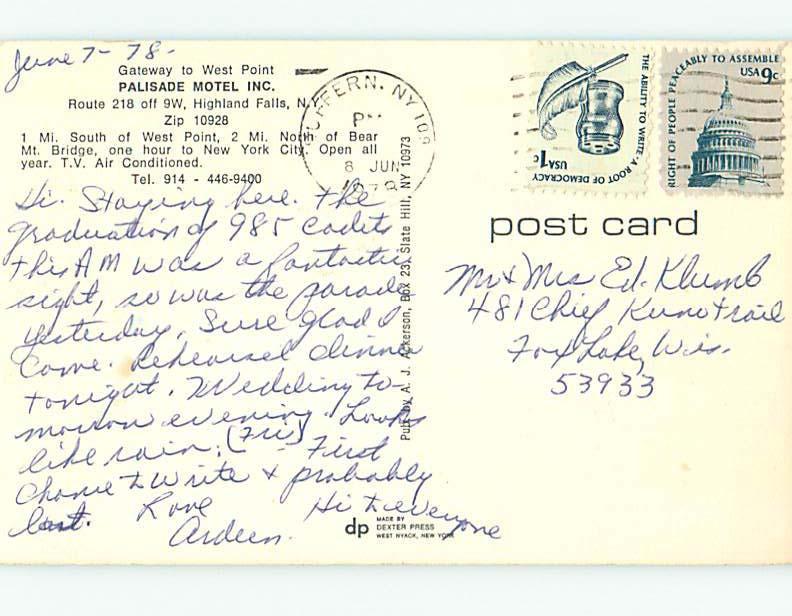 June 7-78-
Gateway to West Point
PALISADE MOTEL INC.
Route 218 off 9W, Highland Falls, N.Y.
Zip 10928
1 Mi. South of West Point, 2 Mi. North of Bear
Mt. Bridge, one hour to New York City. Open all
year. T.V. Air Conditioned.
Tel. 914 - 446-9400
Hi. Staying here. The
graduation of 985 cadets
this AM was a fantastic
sight, so was the parade
yesterday. Sure glad I
came. Rehearsal dinner
tonight. Wedding to-
morrow evening. Looks
like rain. (Fri) - First
chance to write & probably
last. Love
Ardeen.
Hi to everyone
SUFFERN, NY 109
PM
8 JUN
1978
Pub. by A. J. Ackerson, Box 23, Slate Hill, NY 10973
dp MADE BY
DEXTER PRESS
WEST NYACK, NEW YORK
THE ABILITY TO WRITE·A ROOT OF DEMOCRACY
USA 1c
RIGHT OF PEOPLE PEACEABLY TO ASSEMBLE
USA 9c
post card
Mr & Mrs Ed. Klumb
481 Chief Kuno Trail
Fox Lake, Wis.
53933